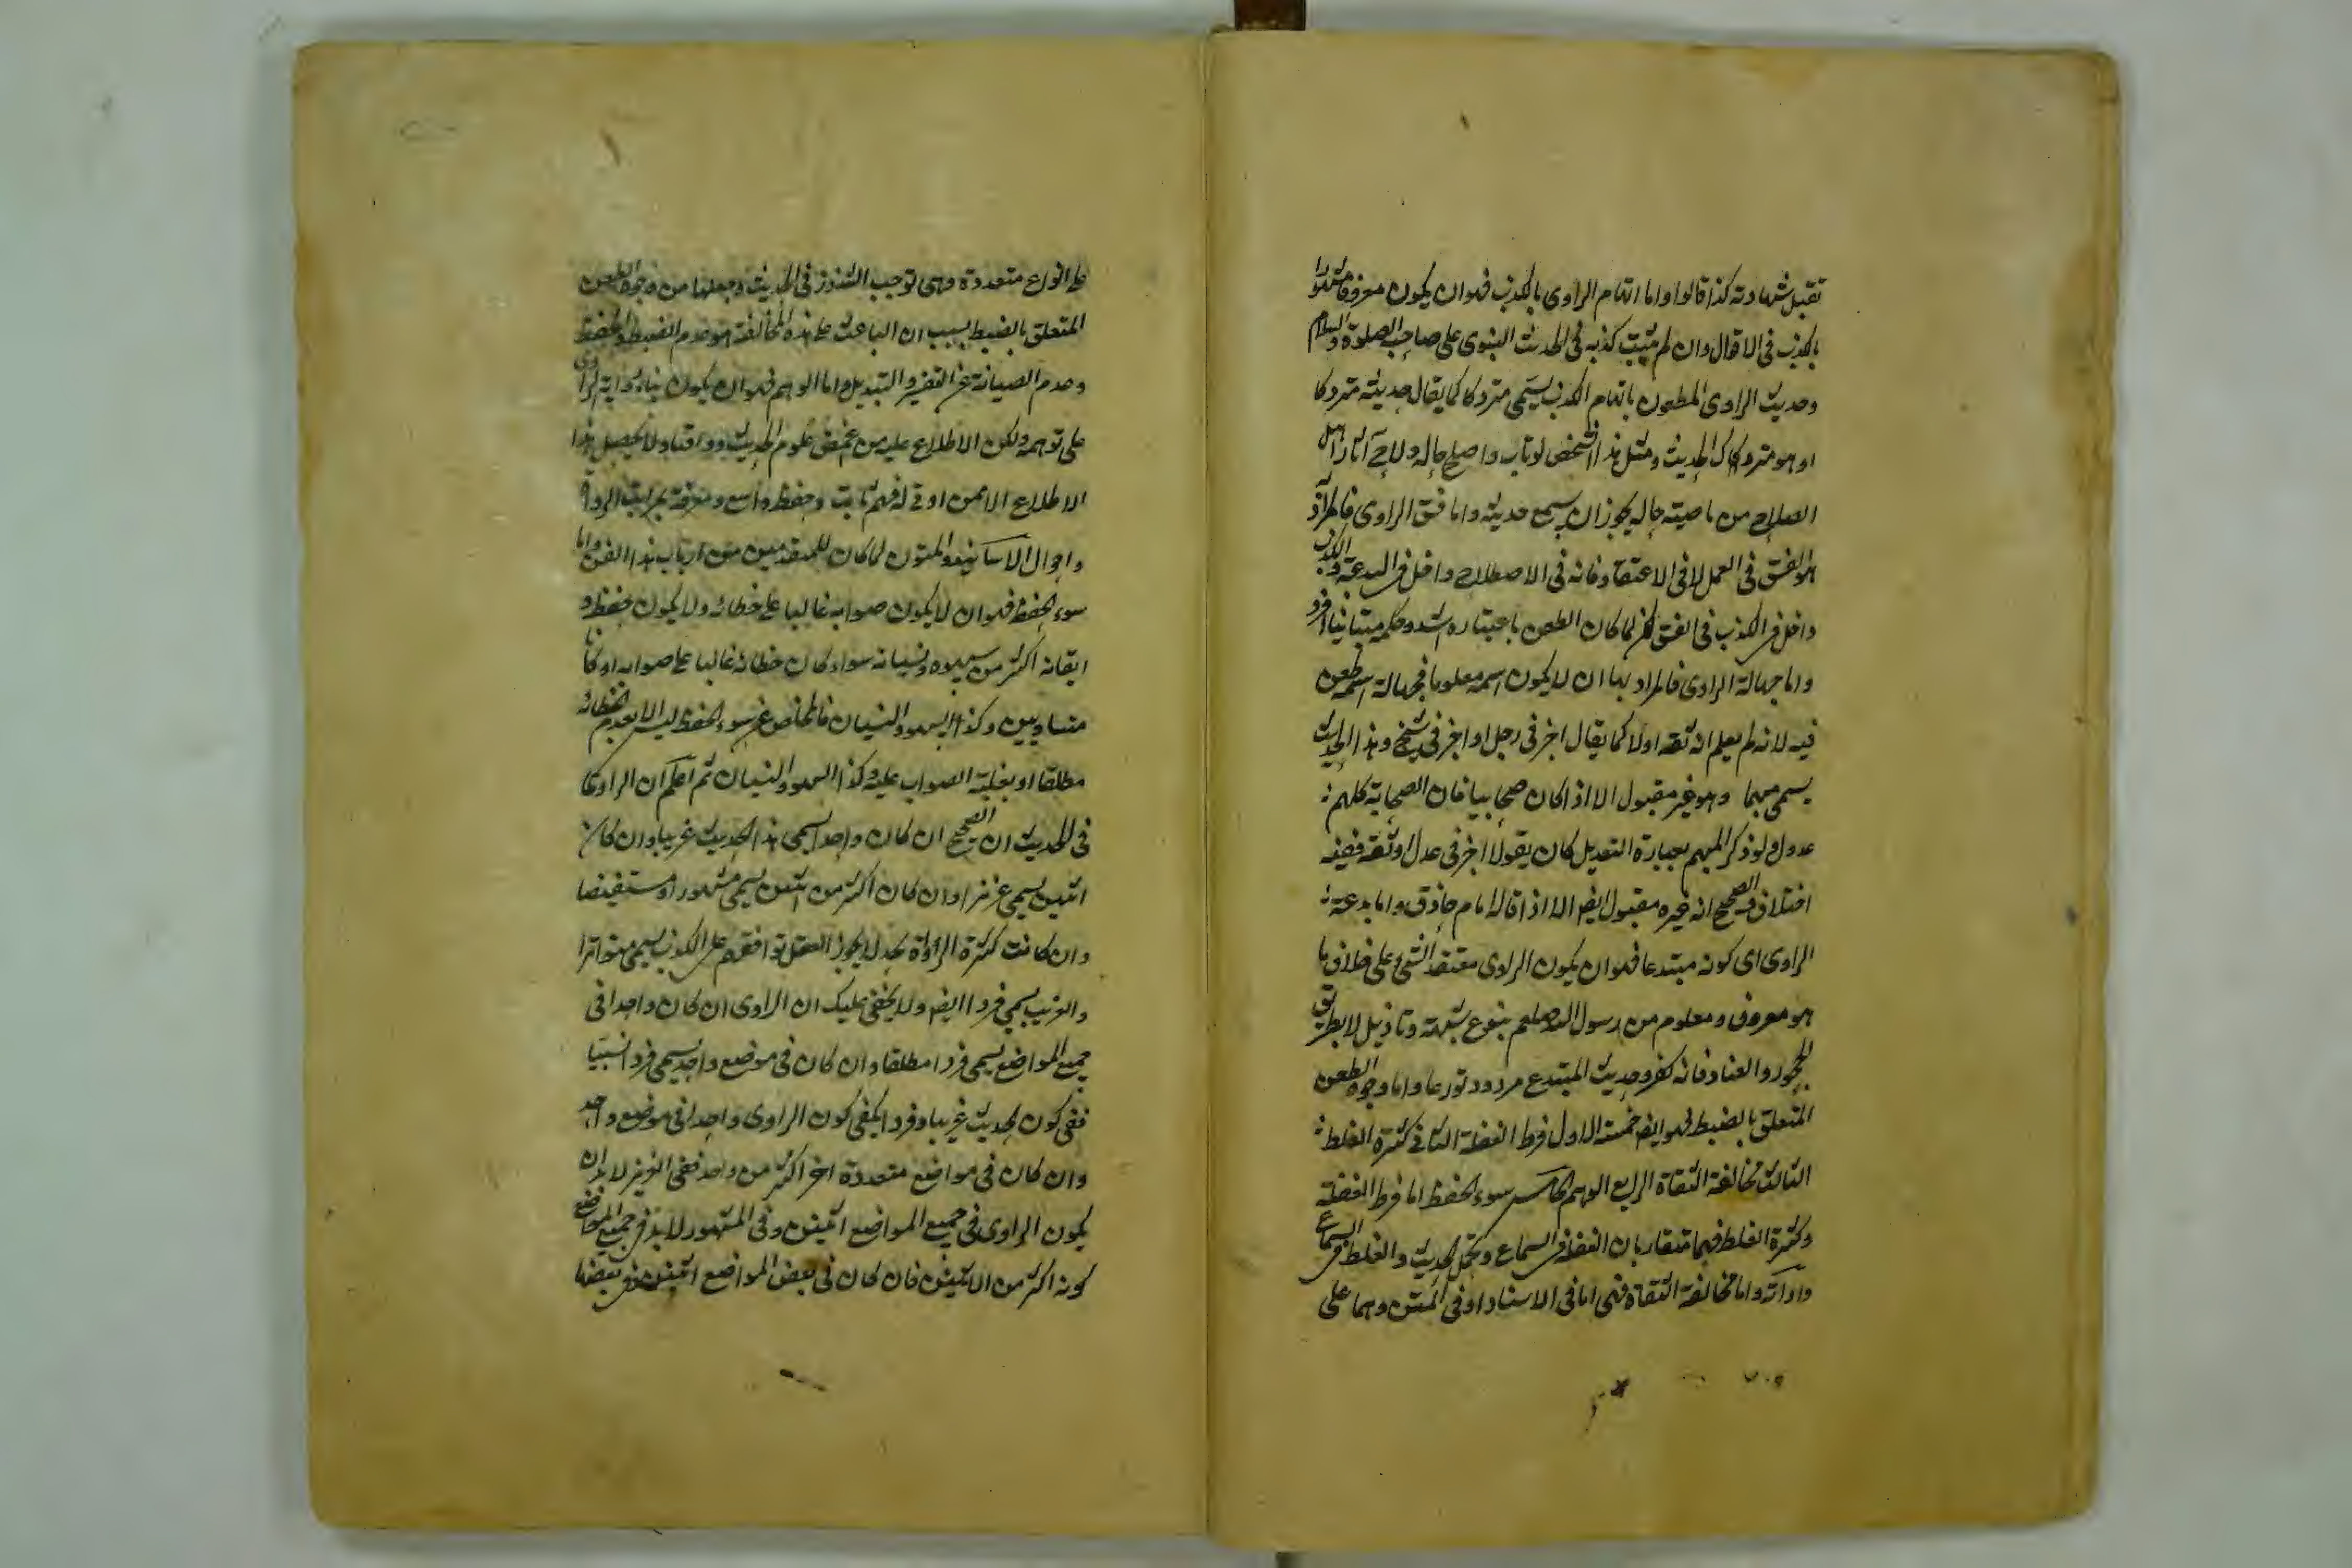 تقبل شهادته كذا قالوا واما اتهام الراوى بالكذب فهو ان يكون معروفا مشهورا
بالكذب فى الاقوال وان لم يثبت كذبه فى الحديث النبوى على صاحب الصلوة والسلام
وحديث الراوى المطعون باتهام الكذب يسمى متروكا كما يقال حديثه متروكا
او هو متروك الحديث ومثل هذا الشخص لو تاب واصلح حاله ولاح آثار اهل
الصلاح من ناصيته حاله يجوز ان يسمع حديثه واما فسق الراوى فالمراد
هو الفسق فى العمل لا فى الاعتقاد فانه فى الاصطلاح داخل فى البدعة والكذب
داخل فى الكذب فى الفسق لكن لما كان الطعن باعتباره اشد وحكمه متباينا افرد
واما جهالة الراوى فالمراد بها ان لا يكون اسمه معلوما فجهالة اسمه طعن
فيه لانه لم يعلم انه ثقه اولا كما يقال اخبرنى رجل او اخبرنى شيخ وهذا الحديث
يسمى مبهما وهو غير مقبول الا اذا كان صحابيا فان الصحابة كلهم
عدول ولو ذكر المبهم بعبارة التعديل كان يقول اخبرنى عدل او ثقة ففيه
اختلاف والصحيح انه غيره مقبول ايضا الا اذا قاله امام حاذق واما بدعة
الراوى اى كونه مبتدعا فهو ان يكون الراوى معتقد الشئ على خلاف ما
هو معروف ومعلوم من رسول الله صلعم بنوع شبهة وتاويل لا بطريق
الجحود والعناد فانه كفر وحديث المبتدع مردود تورعا واما وجوه الطعن
المتعلق بالضبط فهو ايضا خمسة الاول فرط الغفلة الثانى كثرة الغلط
الثالث مخالفة الثقاة الرابع الوهم الخامس سوء الحفظ اما فرط الغفلة
وكثرة الغلط فهما متقاربان الغفلة فى السماع وتحمل الحديث والغلط فى السماع
وادائه واما مخالفة الثقاة فهى اما فى الاسناد او فى المتن وهما على
على انواع متعددة وهى توجب الشذوذ فى الحديث وجعلها من وجوه الطعن
المتعلق بالضبط بسبب ان الباعث على هذه المخالفة هو عدم الضبط والحفظ
وعدم الصيانة عن التغير والتبديل واما الوهم فهو ان يكون بناء رواية الراوى
على توهمه ولكن الاطلاع عليه من غمض علوم الحديث ولا يحصل هذا
الاطلاع الا لمن اوتى له فهم ثابت وحفظ واسع ومعرفة بمراتب الرواة
واحوال الاسانيد والمتون لما كان للمتقدمين من ارباب هذا الفن واما
سوء الحفظ فهو ان لا يكون صوابه غالبا على خطائه ولا يكون حفظه و
ايقانه اكثر من سهوه ونسيانه سواء كان خطائه غالبا على صوابه او كانا
متساويين وكذا السهو والنسيان فالخلاص عن سوء الحفظ ليس الا بعدم الخطائه
مطلقا او بغلبة الصواب عليه وكذا السهو والنسيان ثم اعلم ان الراوى
فى الحديث الصحيح ان كان واحدا يسمى هذا الحديث غريبا وان كان
اثنين يسمى عزيزا وان كان اكثر من اثنين يسمى مشهورا ومستفيضا
وان كانت كثرة الرواة بحد لا يجوز العقل توافقهم على الكذب يسمى متواترا
والغريب يسمى فردا ايضا ولا يخفى عليك ان الراوى ان كان واحدا فى
جميع المواضع يسمى فردا مطلقا وان كان فى موضع واحد يسمى فردا نسبيا
ففى كون الحديث غريبا وفردا يكفى كون الراوى واحدا فى موضع واحد
وان كان فى مواضع متعددة اخر اكثر من واحد ففى العزيز لا بد ان
يكون الراوى فى جميع المواضع اثنين وفى المشهور لا بد فى جميع المواضع
كونه اكثر من الاثنين فان كان فى بعض المواضع اثنين وفى بعضها